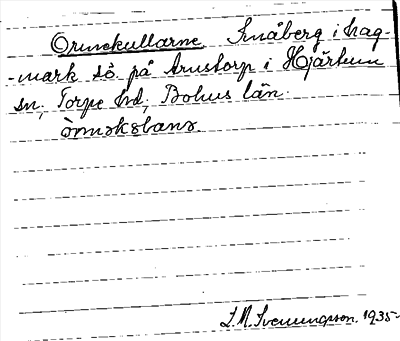 Ormekullarne Småberg i hag-
-mark sö på Arnstorp i Hjärtum
sn; Torpe hd; Bohus län.
òrməkəlanə.
S. M. Svenungsson. 1935-